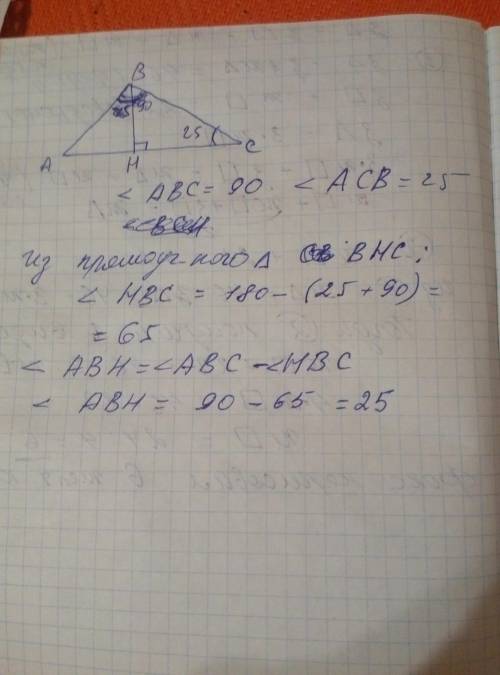 B
90
25
A
H
C
< ABC = 90 < ACB = 25
Из прямоуг ного Δ BHC:
< HBC = 180 - (25 + 90) =
= 65
< ABH = <ABC - <HBC
< ABH = 90 - 65 = 25